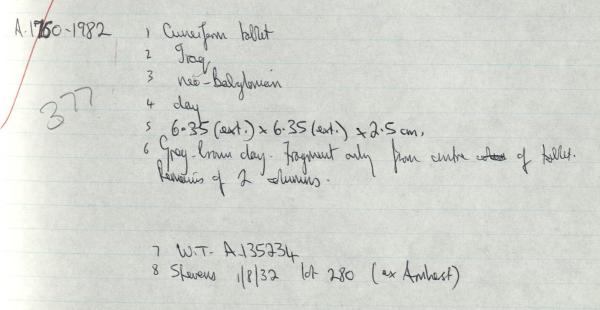 A.1760-1982
1 Cuneiform tablet
2 Iraq
3 neo-Babylonian
4 clay
377
5 6.35 (ext.) x 6.35 (ext.) x 2.5 cm.
6 Grey-brown clay. Fragment only from centre of tablet.
Remains of 2 columns.
7 W.T- A.135234
8 Stevens 1/8/32 lot 280 (ex Amherst)